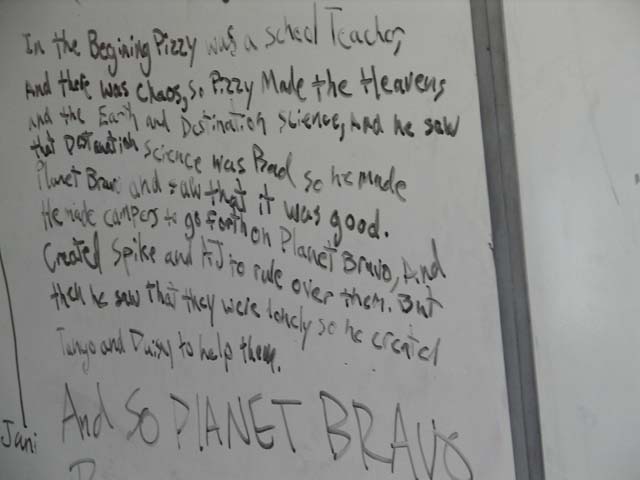 In the Begining Pizzy was a school Teacher,
And there was Chaos, so Pizzy Made the Heavens
and the Earth and Destination science, And he saw
that Destination science was Bad so he made
Planet Bravo and saw that it was good.
He made campers to go forth on Planet Bravo, And
Created Spike and AJ to rule over them. But
then he saw that they were lonely so he created
Tango and Daisy to help them.
And So PLANET BRAVO
Jani